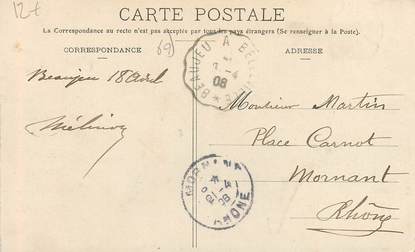 12+
CARTE POSTALE
La Correspondance au recto n'est pas acceptée par tous les pays étrangers (Se renseigner à la Poste).
CORRESPONDANCE
69
ADRESSE
BEAUJEU A
08
Beaujeu 18 Avril
Monsieur Martin
Place Carnot
Mornant
Rhône
MORNANT
08
RHONE